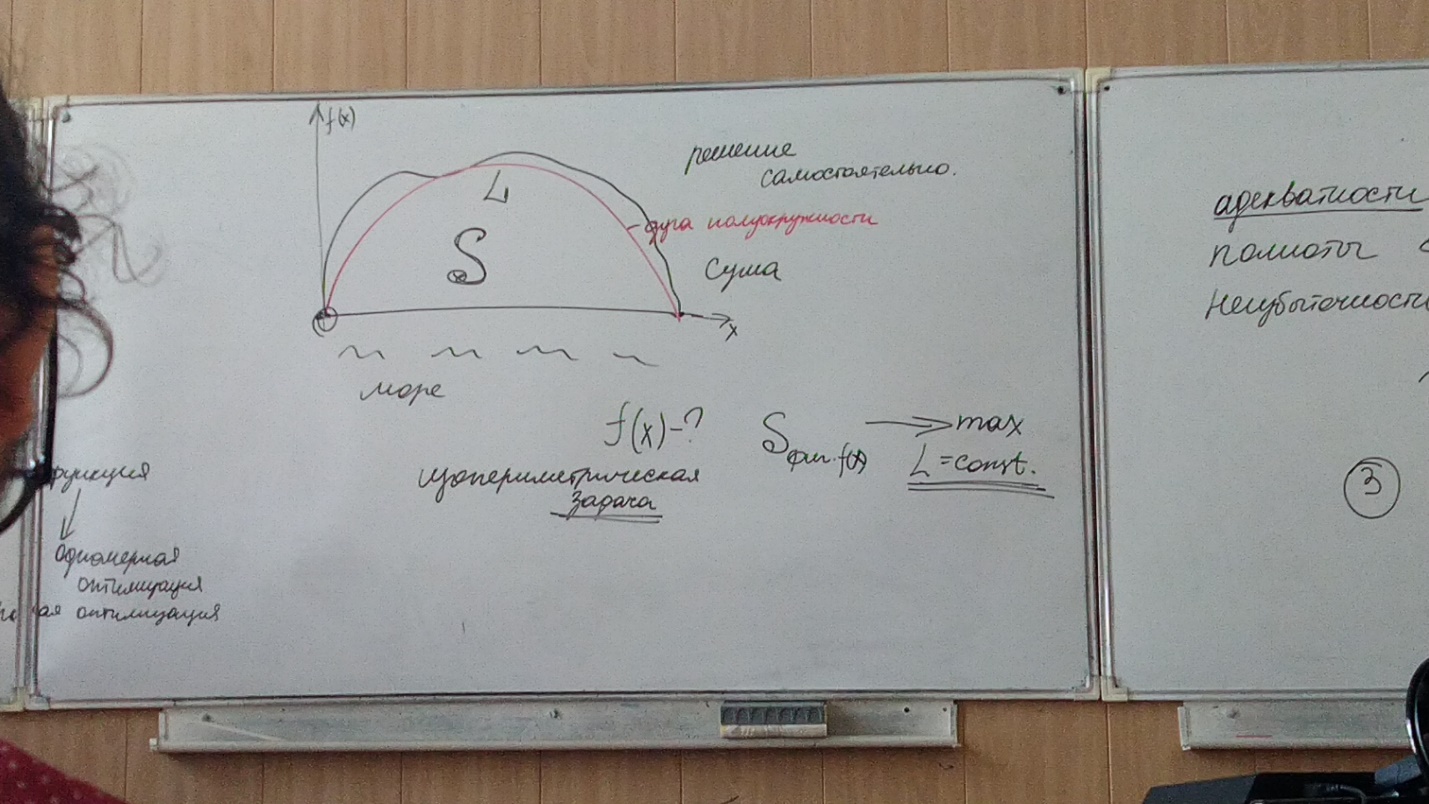 f(x)
решение
самостоятельно.
L
дуга полуокружности
S
суша
x
море
f(x)-? S фиг. f(x) → max
L = const.
изопериметрическая
задача
функция
одномерная
оптимизация
ая оптимизация
адекватности
полноты
неизбыточности
3